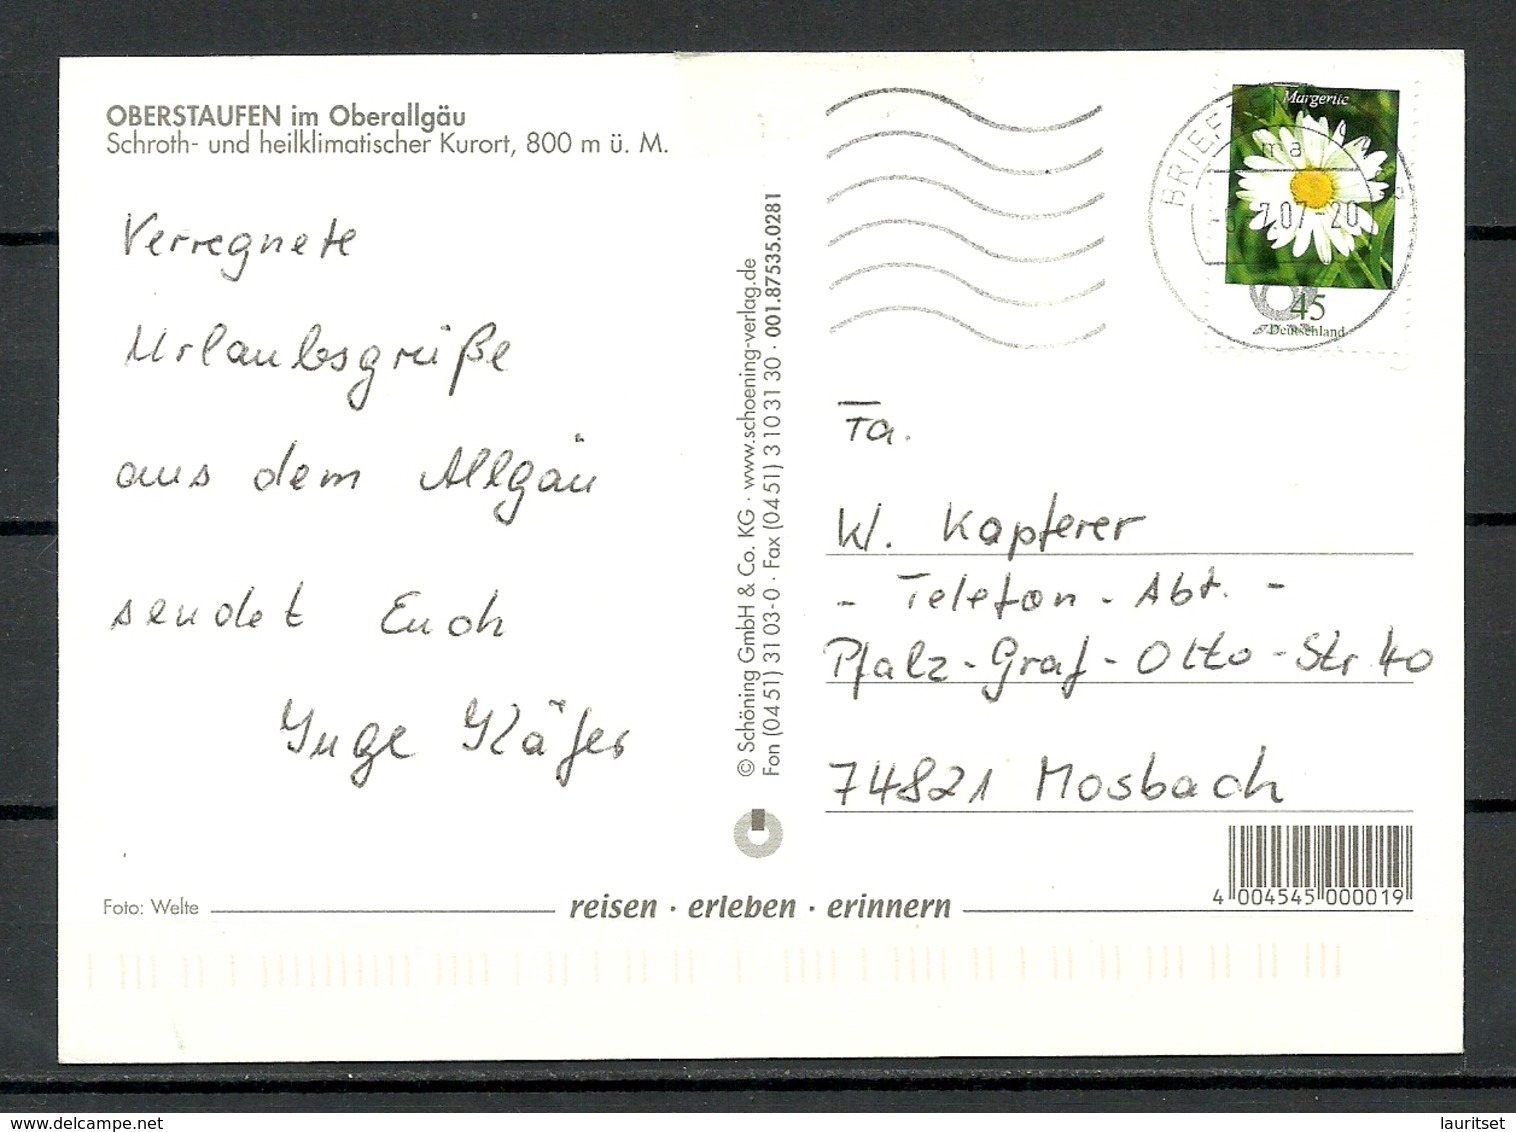 OBERSTAUFEN im Oberallgäu
Schroth- und heilklimatischer Kurort, 800 m ü. M.
Verregnete
Urlaubsgrüße
aus dem Allgäu
sendet Euch
Inge Käfer
Foto: Welte
© Schöning GmbH & Co. KG · www.schoening-verlag.de
Fon (04 51) 31 03-0 · Fax (04 51) 3 10 31 30 · 001.87535.0281
Margerite
45
Deutschland
BRIEFZENTRUM
ma
7.07-20
Fa.
W. Kapferer
- Telefon - Abt. -
Pfalz-Graf-Otto-Str 40
74821 Mosbach
4 004545 000019
reisen · erleben · erinnern
delcampe.net
lauritset